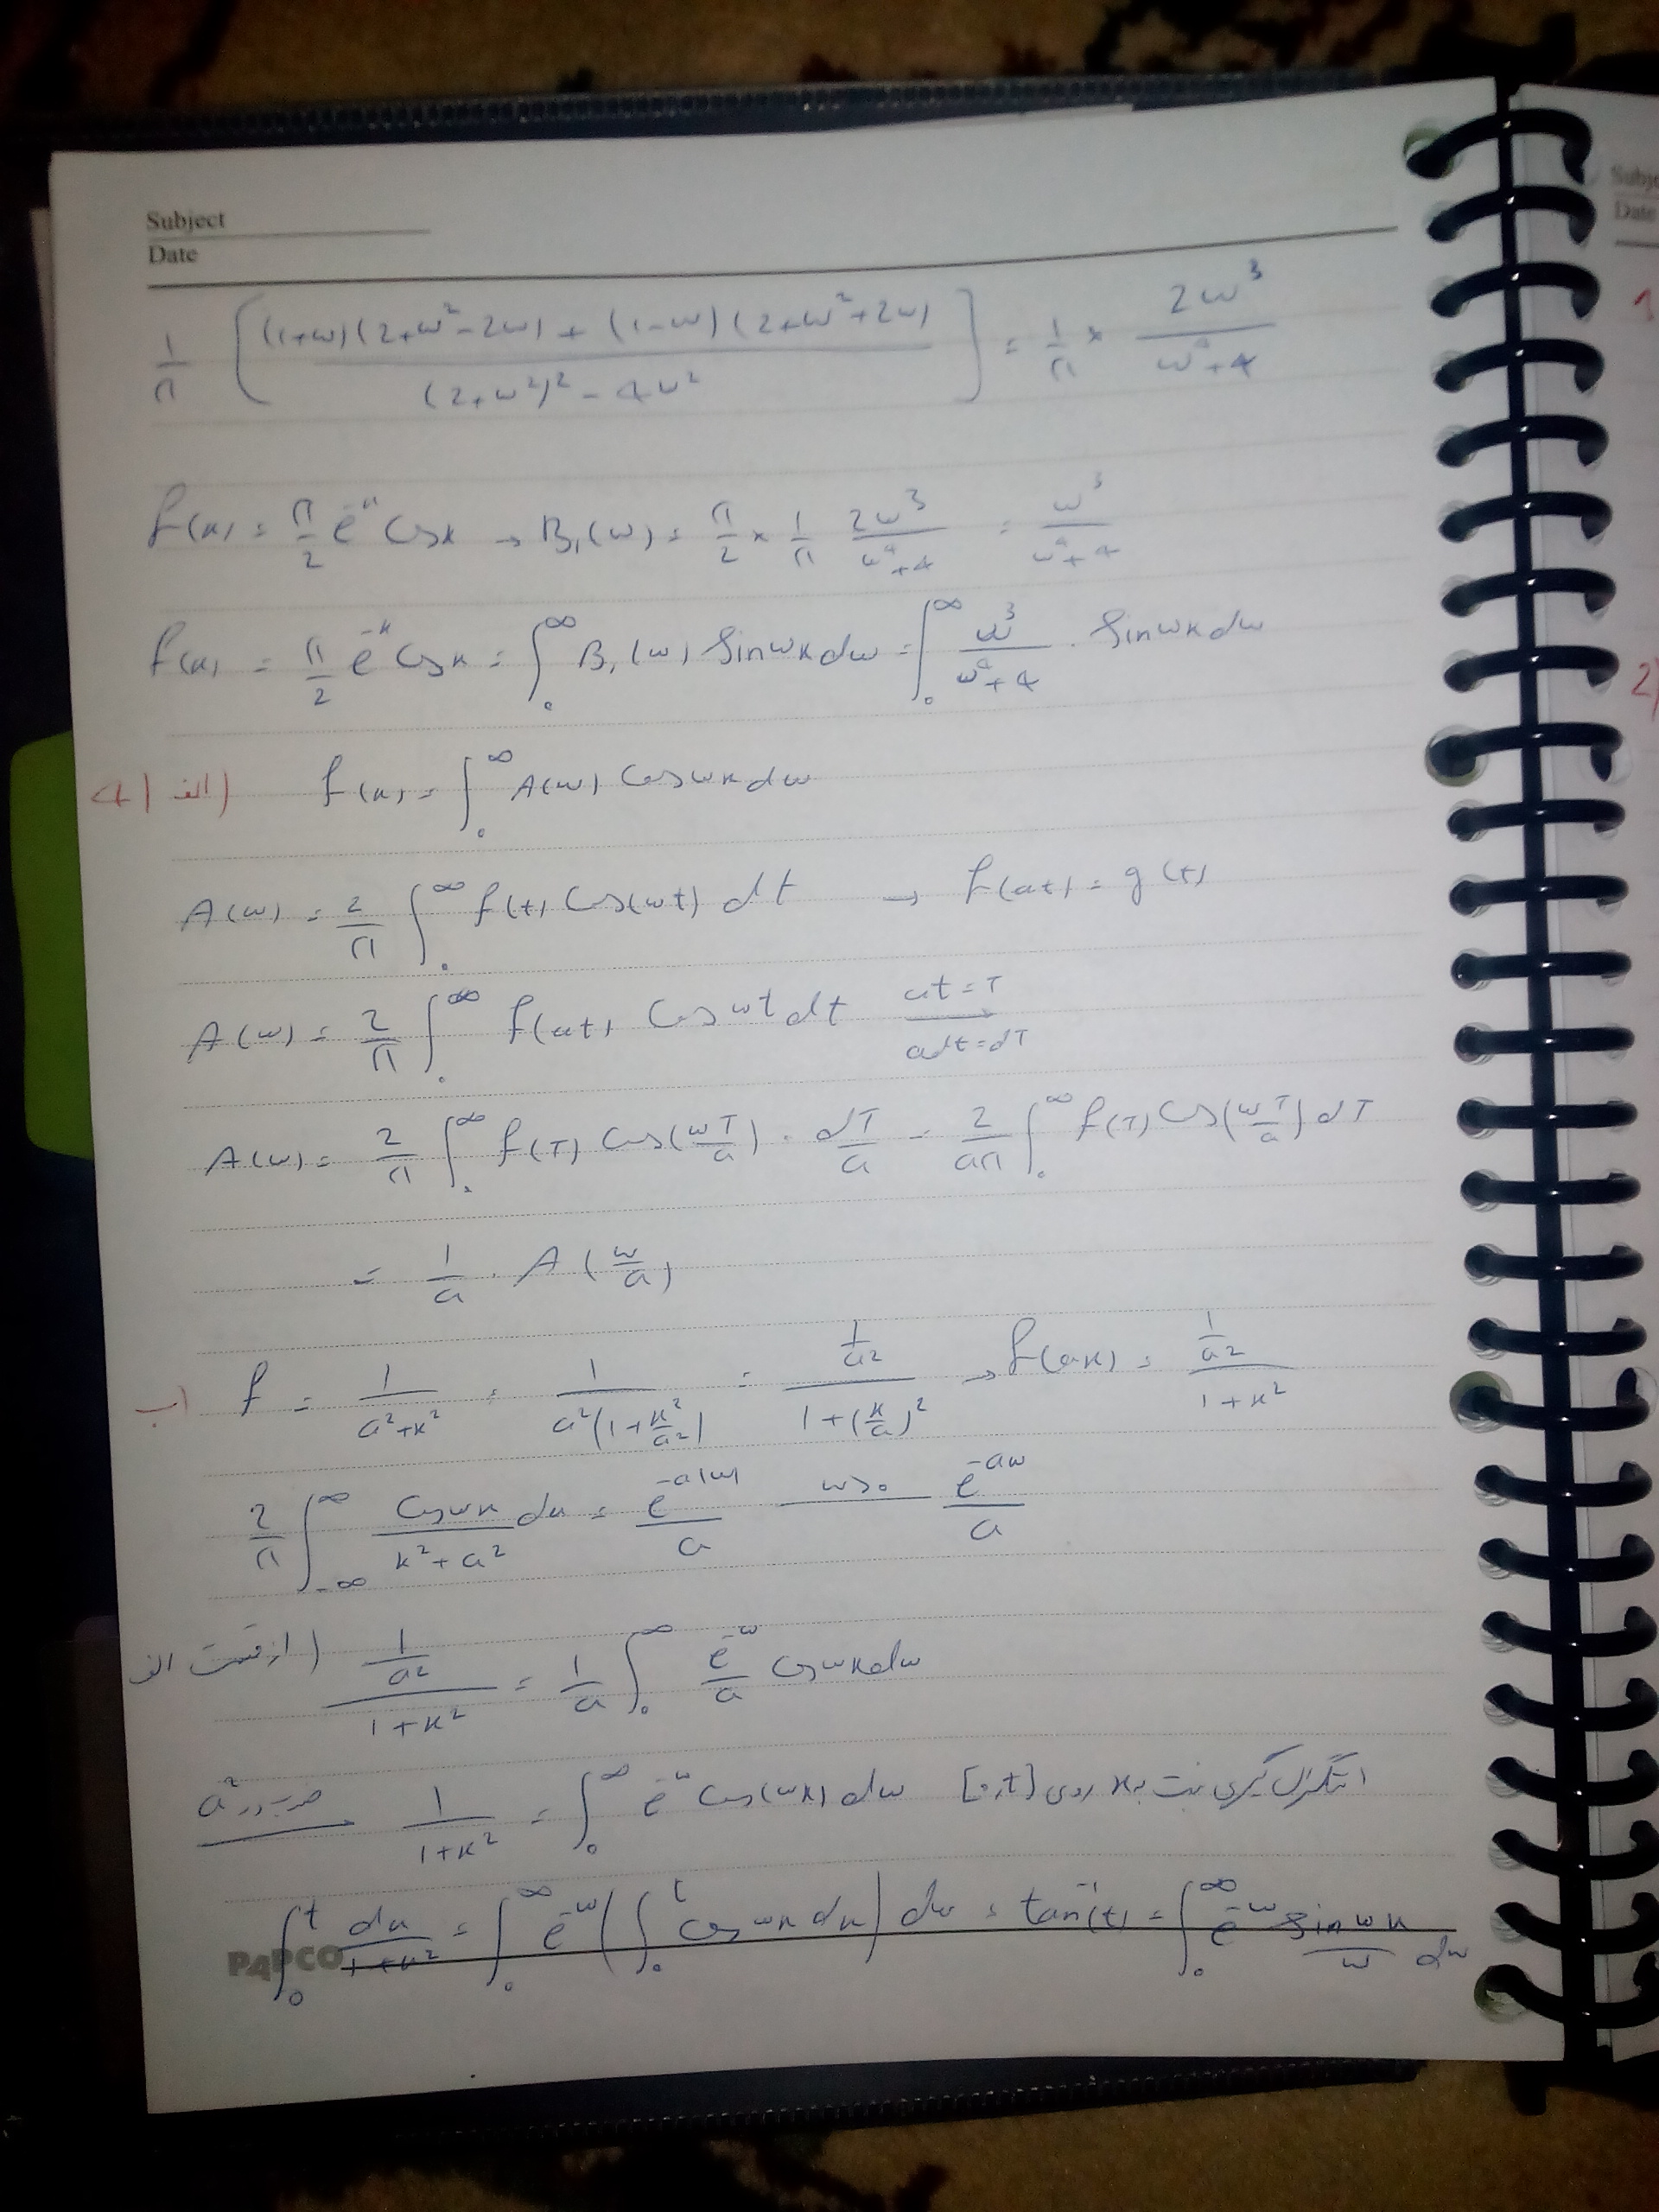 Subject
Date
1/π [ ((1+ω)(2+ω²-2ω) + (1-ω)(2+ω²+2ω)) / ((2+ω²)² - 4ω²) ] = 1/π × 2ω³/(ω⁴+4)
f(x) = π/2 e^-x Cos x → B₁(ω) = π/2 × 1/π 2ω³/(ω⁴+4) = ω³/(ω⁴+4)
f(x) = π/2 e^-x Cos x = ∫₀^∞ B₁(ω) Sin ωx dω = ∫₀^∞ ω³/(ω⁴+4) . Sin ωx dω
4) الف) f(x) = ∫₀^∞ A(ω) Cos ωx dω
A(ω) = 2/π ∫₀^∞ f(t) Cos(ωt) dt → f(at) = g(t)
A(ω) = 2/π ∫₀^∞ f(at) Cos ωt dt at=T adt=dT
A(ω) = 2/π ∫₀^∞ f(T) Cos(ωT/a) . dT/a = 2/aπ ∫₀^∞ f(T) Cos(ωT/a) dT
= 1/a . A(ω/a)
ب) f = 1/(a²+x²) = 1/(a²(1+x²/a²)) = (1/a²)/(1+(x/a)²) → f(ax) = (1/a²)/(1+x²)
2/π ∫_-∞^∞ Cos ωx/(x²+a²) dx = e^-a|ω|/a ω>0 e^-aω/a
از قسمت الف) (1/a²)/(1+x²) = 1/a ∫₀^∞ e^-ω/a cos ωx dω
ضرب در a² 1/(1+x²) = ∫₀^∞ e^-ω Cos(ωx) dω انتگرال گیری نسبت به x روی [0,t]
∫₀^t dx/(1+x²) = ∫₀^∞ e^-ω (∫₀^t cos ωx dx) dω = tan⁻¹(t) = ∫₀^∞ e^-ω sin ωx/ω dω
PAPCO
Subje
Date
1
2)